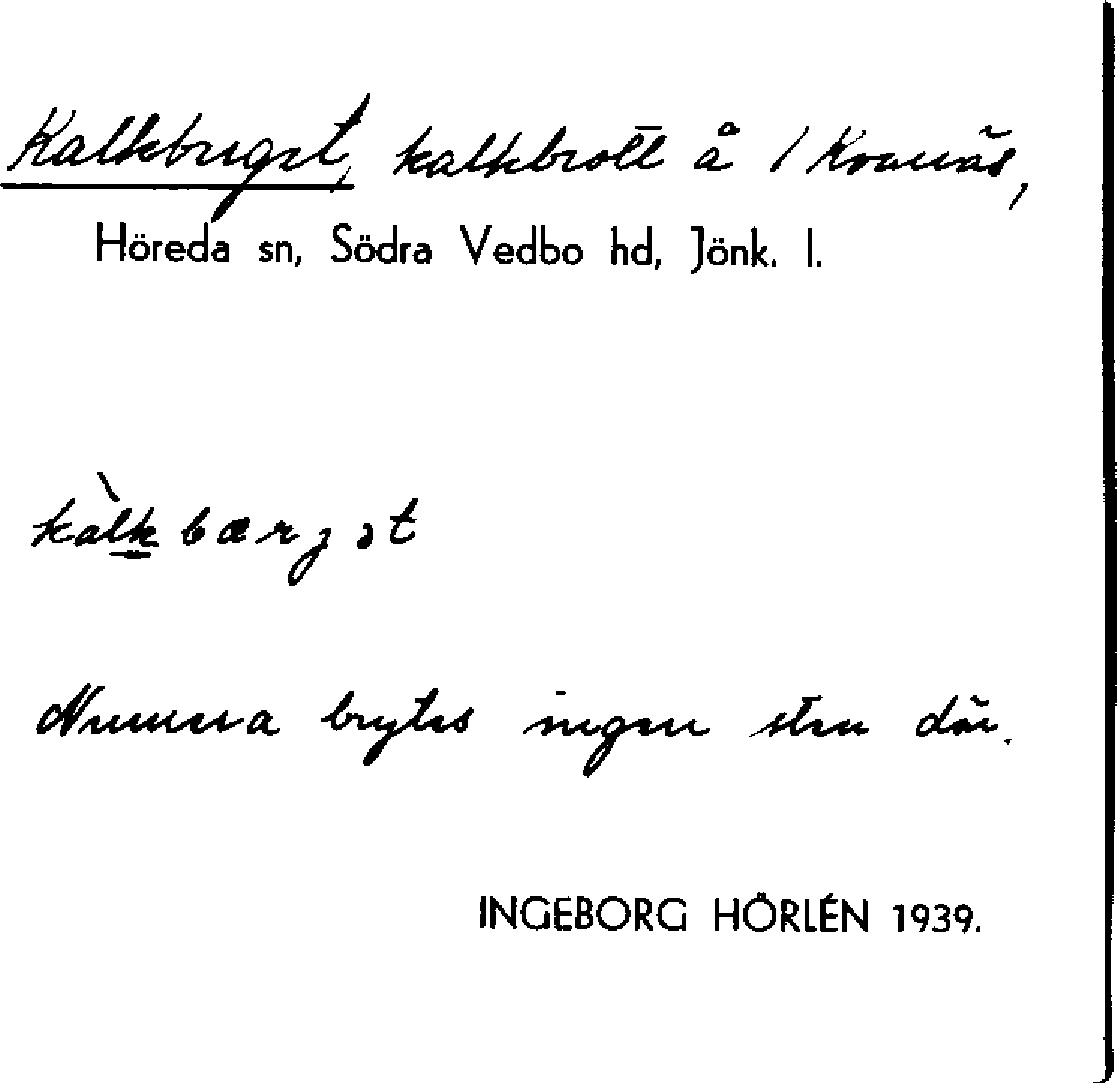 Kalkberget, kalkbrott å 1 Kvarnäs,
Höreda sn, Södra Vedbo hd, Jönk. l.
kàlkbærjət
Numera brytes ingen sten där.
INGEBORG HÖRLÉN 1939.